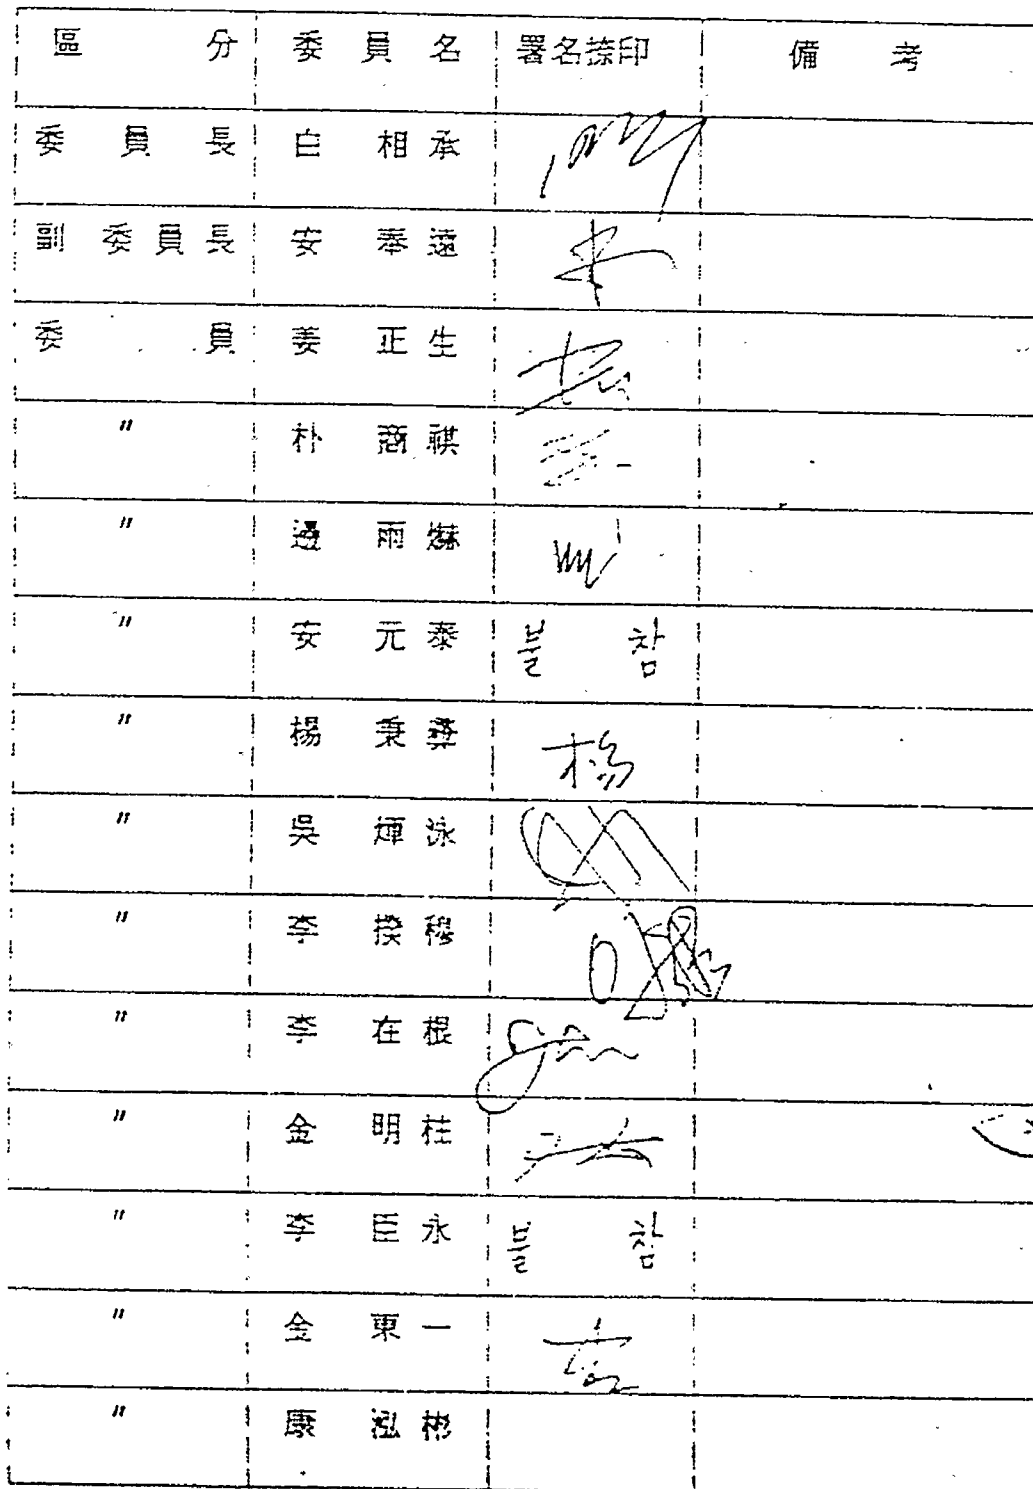 區 分 委 員 名 署名捺印 備 考
委 員 長 白 相 承
副 委 員 長 安 奉 遠
委 員 姜 正 生
〃 朴 商 祺
〃 雨
〃 安 元 泰 불 참
〃 楊 秉 彛 楊
〃 吳 輝 泳
〃 李 揆 穆
〃 李 在 根
〃 金 明 柱
〃 李 臣 永 불 참
〃 金 東 一
〃 康 泓 彬